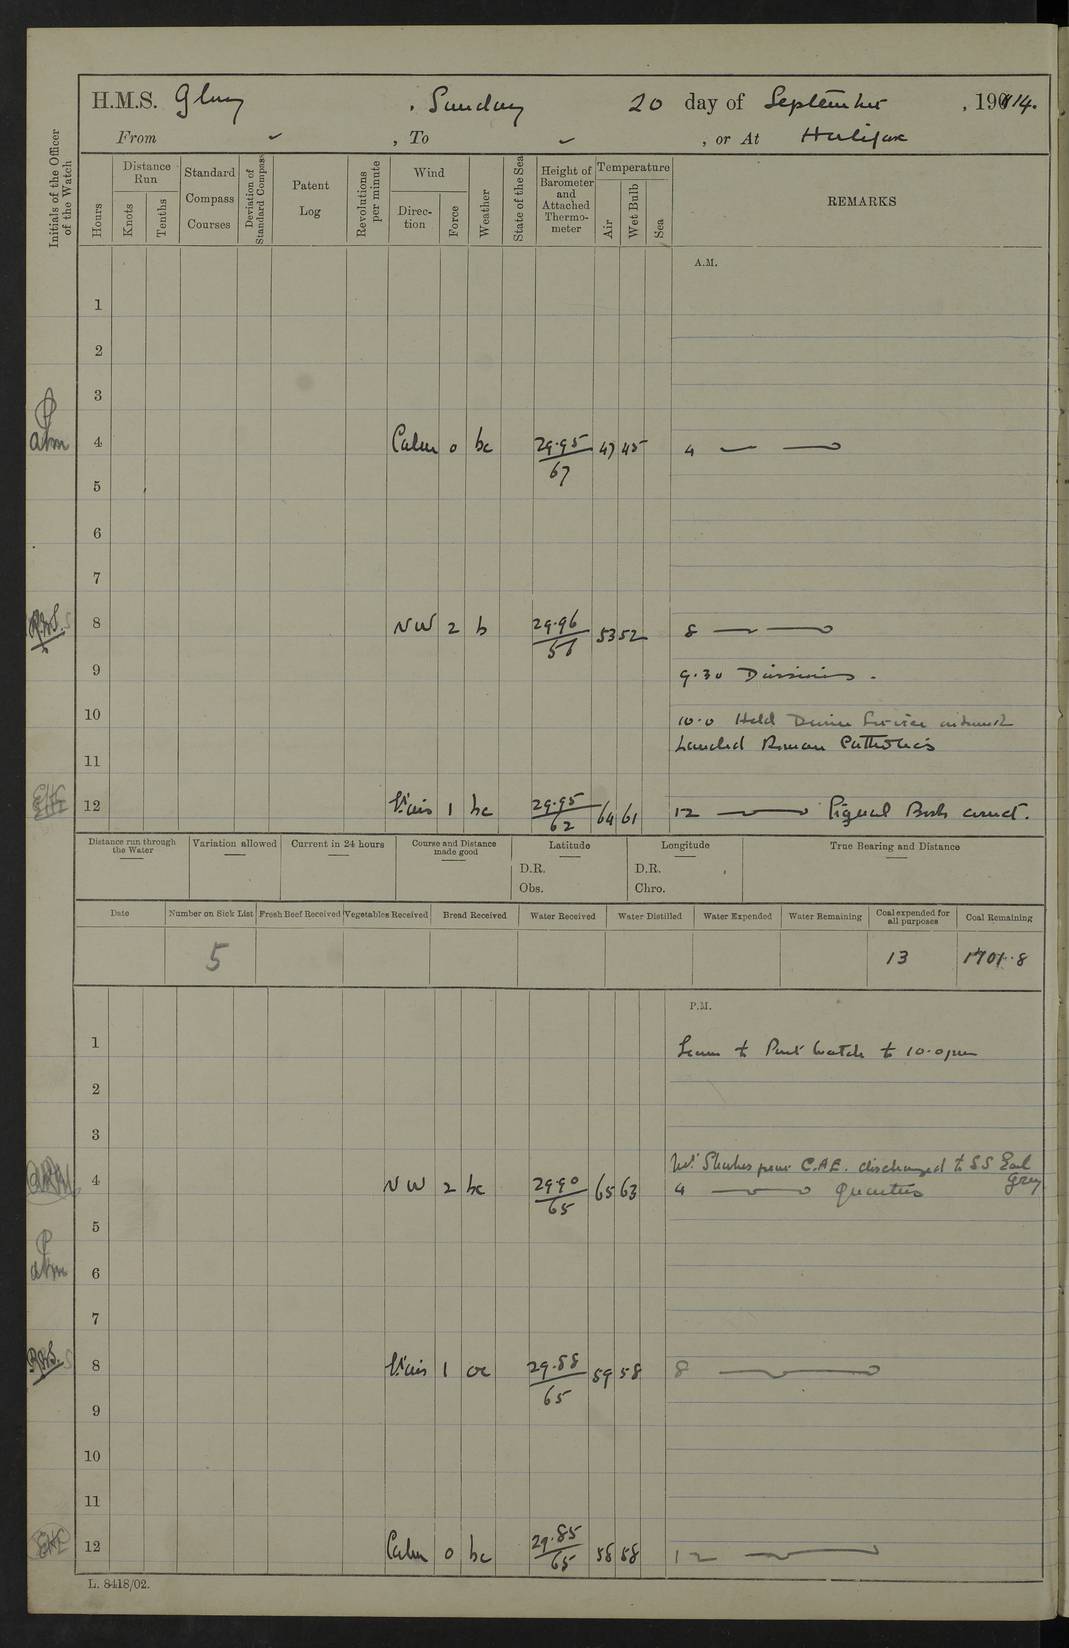 H.M.S. Glory , Sunday 20 day of September , 1914.
From ✓ , To ✓ , or At Halifax
Initials of the Officer of the Watch
Hours
Distance Run
Knots
Tenths
Standard Compass Courses
Deviation of Standard Compass
Patent Log
Revolutions per minute
Wind
Direction
Force
Weather
State of the Sea
Height of Barometer and Attached Thermometer
Temperature
Air
Wet Bulb
Sea
REMARKS
A.M.
1
2
3
4 Calm 0 bc 29.95/67 47 45 4
5
6
7
8 NW 2 b 29.96/56 53 52 8
9 9.30 Divisions.
10 10.0 Held Divine Service
Landed Roman Catholics
11
12 V'airs 1 bc 29.95/62 64 61 12 Signal Books correct.
Distance run through the Water
Variation allowed
Current in 24 hours
Course and Distance made good
Latitude
Longitude
True Bearing and Distance
D.R. D.R.
Obs. Chro.
Date
Number on Sick List
Fresh Beef Received
Vegetables Received
Bread Received
Water Received
Water Distilled
Water Expended
Water Remaining
Coal expended for all purposes
Coal Remaining
5 13 1701.8
P.M.
1 Leave to Part Watch to 10.0 pm
2
3
from C.A.E. discharged to SS Earl Grey
4 NW 2 bc 29.90/65 65 63 4 Quarters
5
6
7
8 V'airs 1 oc 29.88/65 59 58 8
9
10
11
12 Calm 0 bc 29.85/65 58 58 12
L. 8418/02.